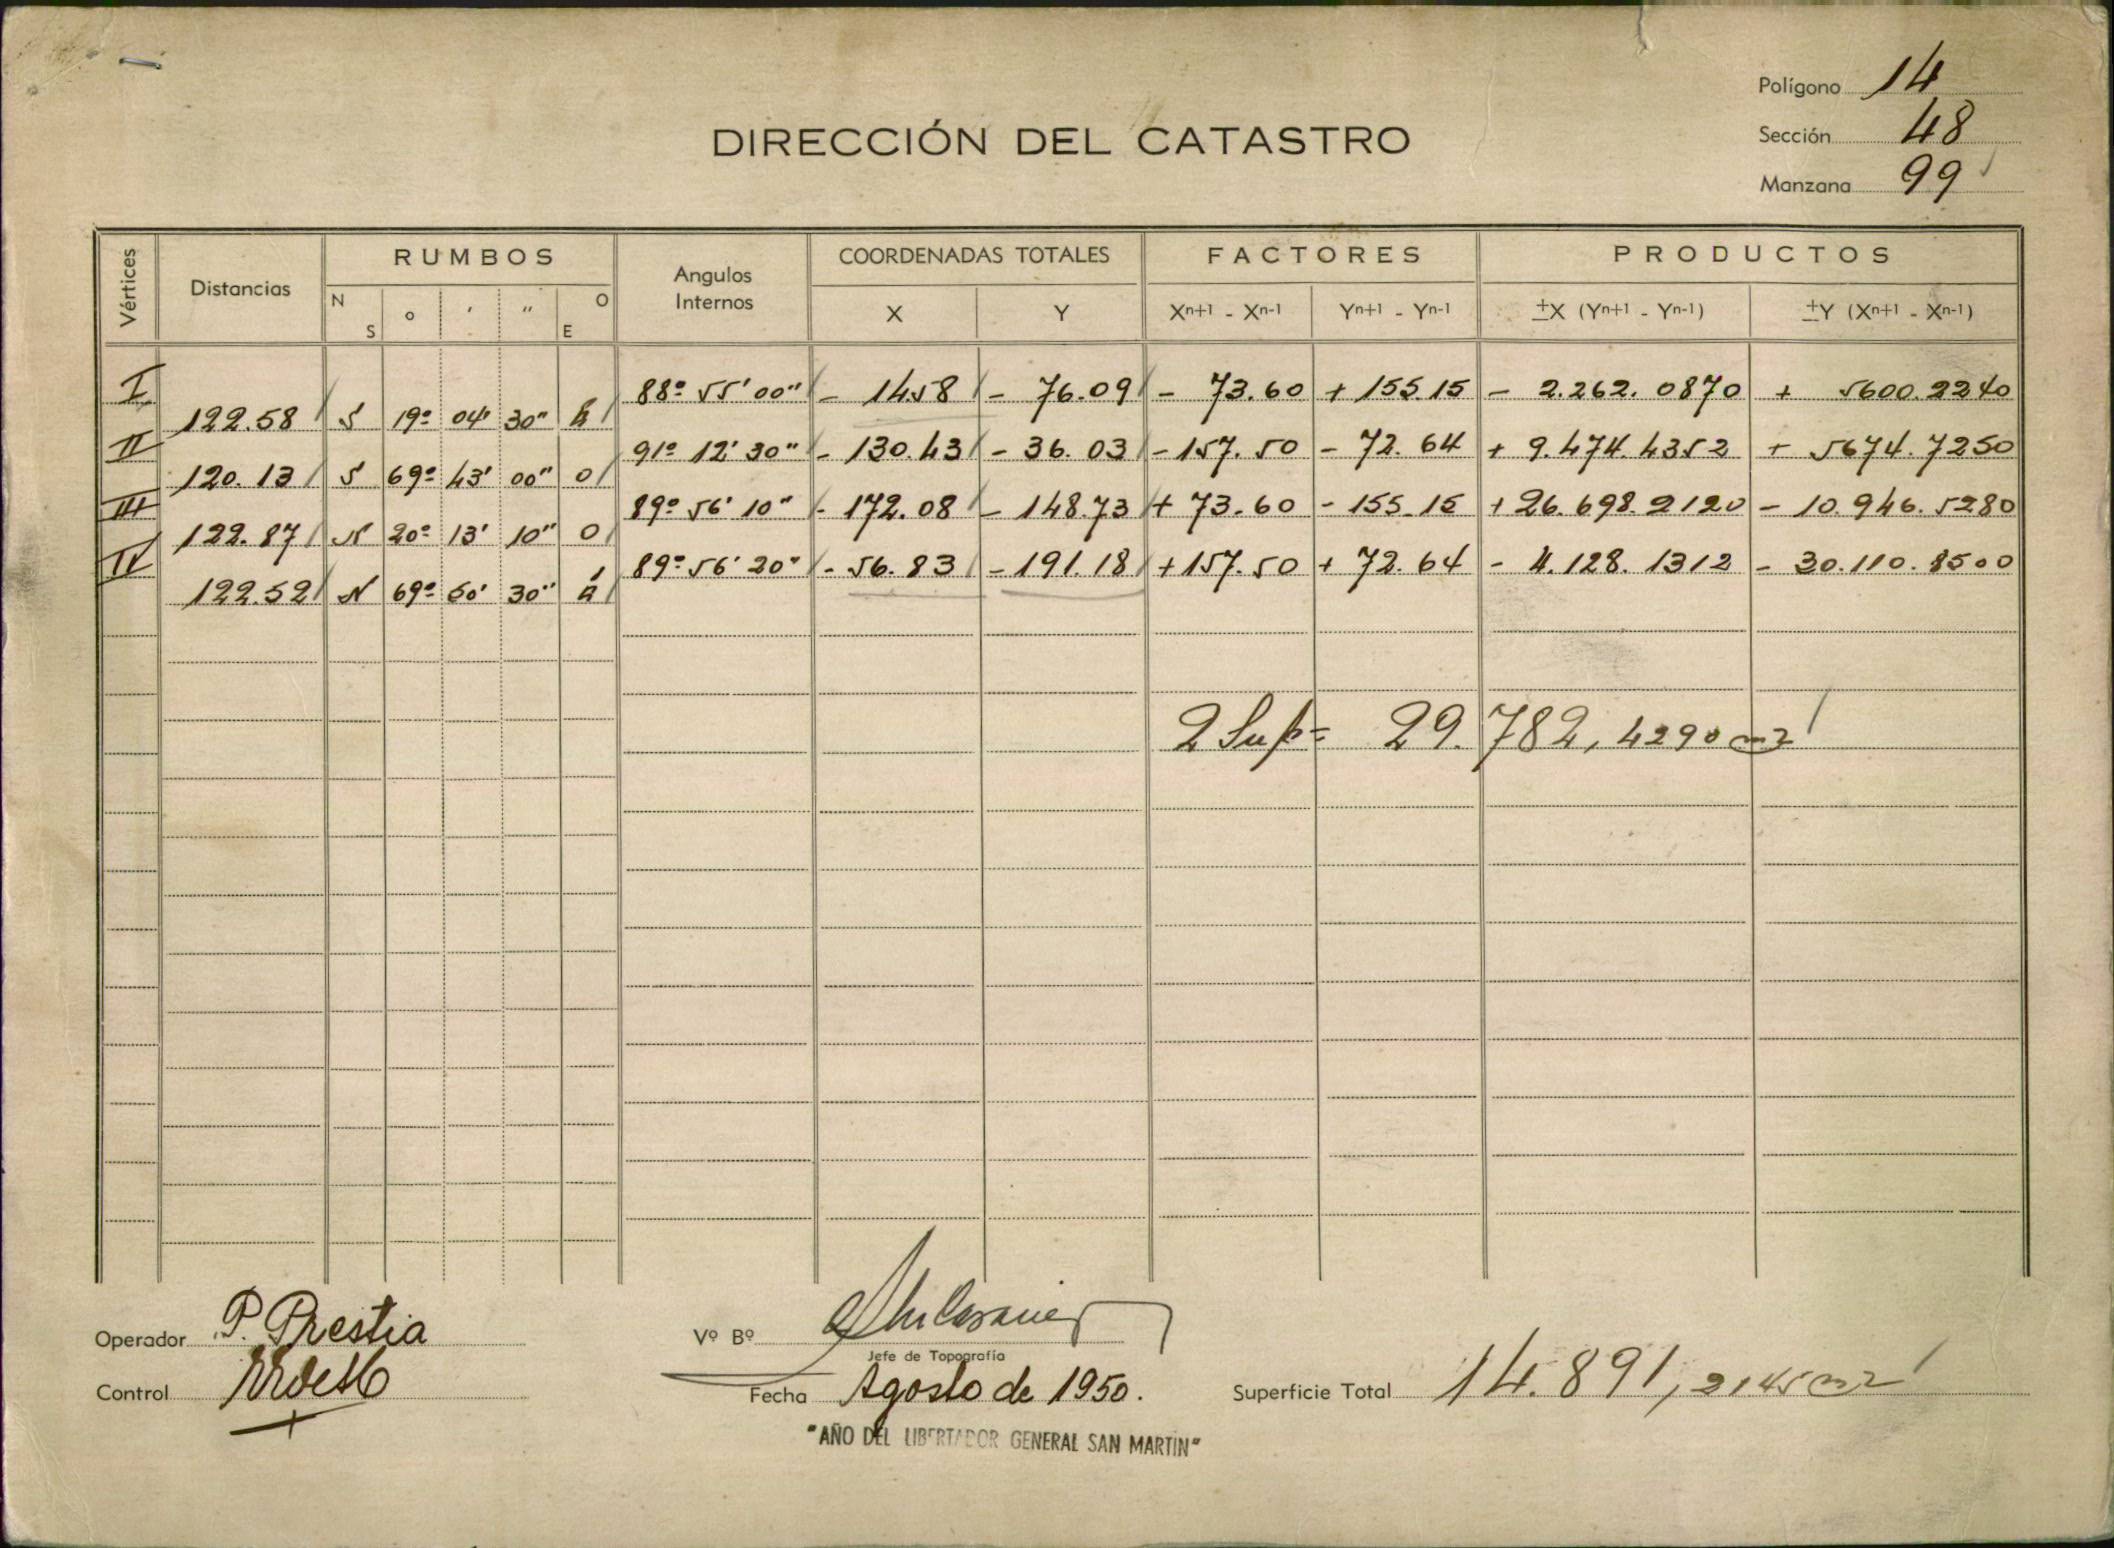 Polígono 14
DIRECCIÓN DEL CATASTRO
Sección 48
Manzana 99
Vértices Distancias RUMBOS Angulos Internos COORDENADAS TOTALES FACTORES PRODUCTOS
N S ° ' " O E X Y Xⁿ⁺¹ - Xⁿ⁻¹ Yⁿ⁺¹ - Yⁿ⁻¹ ±X (Yⁿ⁺¹ - Yⁿ⁻¹) ±Y (Xⁿ⁺¹ - Xⁿ⁻¹)
I 88º 55' 00" - 14.58 - 76.09 - 73.60 + 155.15 - 2.262.0870 + 5600.2240
122.58 S 19º 04' 30" É
II 91º 12' 30" - 130.43 - 36.03 - 157.50 - 72.64 + 9.474.4352 + 5674.7250
120.13 S 69º 43' 00" O
III 89º 56' 10" - 172.08 - 148.73 + 73.60 - 155.15 + 26.698.2120 - 10.946.5280
122.87 N 20º 13' 10" O
IV 89º 56' 20" - 56.83 - 191.18 + 157.50 + 72.64 - 4.128.1312 - 30.110.8500
122.52 N 69º 50' 30" É
2 Sup= 29.782,4290 m2
Operador P. Prestia
Vº Bº
Jefe de Topografía
Control
Fecha Agosto de 1950.
Superficie Total 14.891,2145 m2
"AÑO DEL LIBERTADOR GENERAL SAN MARTIN"